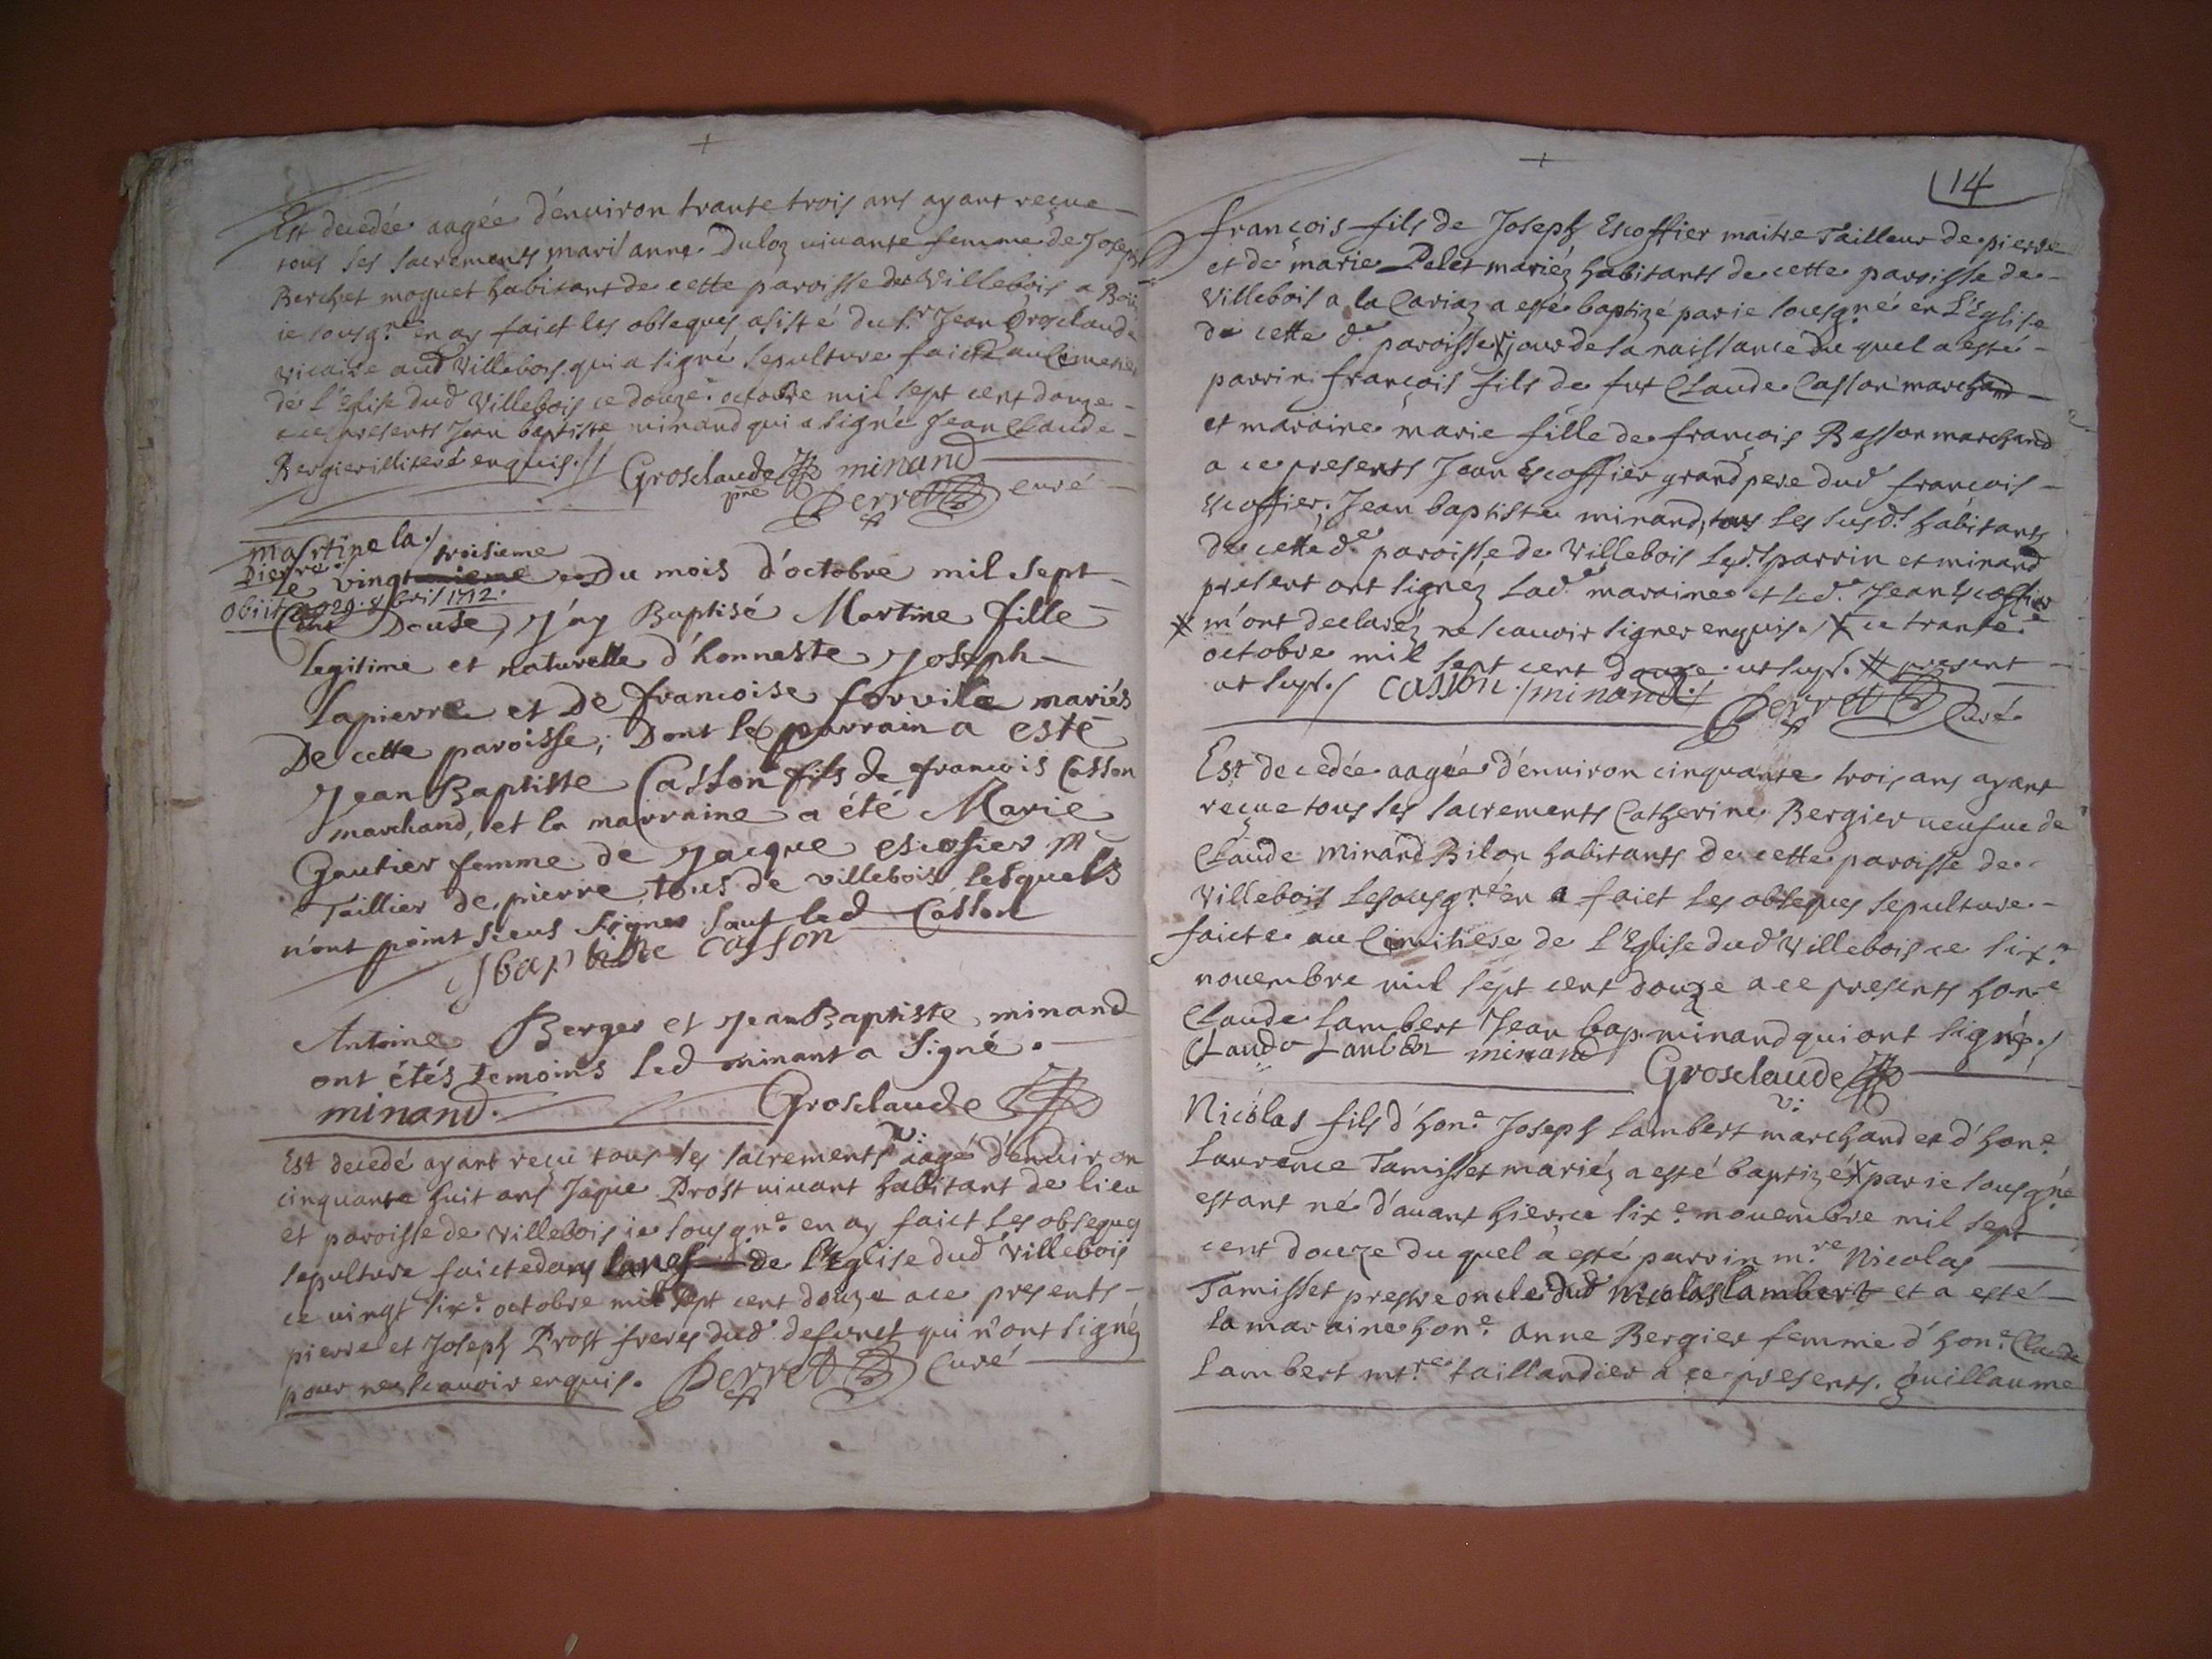 +
Est decedée aagée d'enuiron trante trois ans ayant reçue
tous les sacrements mari anne Duloz uiuante femme de Joseph
Berchet moquet habitant de cette paroisse de Villebois a
ie sousg.né en ay faict les obseques asisté du s.r Jean Grosclaude
vicaire aud Villebois qui a signé sepulture faicte au Cimetie
de l'Eglise dud Villebois ce douze.e octobre mil sept cent douze
a ce presents Jean baptiste minand qui a signé Jean Claude
Bergier illiteré enquis.//
Grosclaude pne minand
Perret curé
Martine la
pierre
obiit 29. 8bris 1712.
troisieme
Le vingt du mois d'octobre mil sept
Cent Douse, J'ay Baptisé Martine fille
legitime et naturelle d'honneste Joseph
Lapierre et De francoise forvile mariés
De cette paroisse; Dont le parrain a esté
Jean Baptiste Casson fils de francois Casson
marchand, et la marraine a été Marie
Gautier femme de Jacque escofier m
Taillier de pierre, tous de villebois lesquels
n'ont point sceus signer sauf led Casson
Jbaptiste casson
Antoine Berger et Jean Baptiste minand
ont étés temoins led minant a signé.
minand. Grosclaude
v:
Est decedé ayant reçu tous les sacrements aagé d'enuiron
cinquante huit ans Jaque Prost uiuant habitant de lieu
et paroisse de Villebois ie sousgné en ay faict les obseques
sepulture faicte dans de l'Eglise dud Villebois
ce uingt six.e octobre mil sept cent douze a ce presents
pierre et Joseph Prost freres dud defunct qui n'ont signé
pour ne scauoir enquis. Perret Curé
+
14
françois fils de Joseph Escoffier maitre Tailleur de pierre
et de marie Pelet mariéz habitants de cette paroisse de
Villebois a la Cariaz a esté baptizé par ie sousgné en l'Eglise
de cette d.e paroisse jour de sa naissance du quel a esté
parrin françois fils de fut Claude Casson marchand
et maraine marie fille de françois Besson marchand
a ce presents Jean Escoffier grand pere dud francois
Escoffier, Jean baptiste minand, tous les susd.s habitants
de cette d.e paroisse de Villebois led. parrin et minand
present ont signéz lad.e maraine et led.e Jean Escoffier
m'ont declaréz ne scauoir signer enquis./ ce trante.e
octobre mil sept cent douze ut sup. # present
ut sup./ casson./ minand./
Perret Curé
Est decedée aagée d'enuiron cinquante trois ans ayant
reçue tous les sacrements Catherine Bergier ueufue de
Claude Minand Bilon habitants de cette paroisse de
Villebois le sousgné en a faict les obseques sepulture
faicte au Cimitiere de l'Eglise dud Villebois ce six.e
nouembre mil sept cent douze a ce presents hon.e
Claude Lambert Jean bap. minand qui ont signé./
Claude Lanber minand Grosclaude
v:
Nicolas fils d'hon.e Joseph Lambert marchand et d'hon.e
Laurence Tamisset mariéz a esté baptizé par ie sousgné
estant né d'auant hier ce six.e nouembre mil sept
cent douze du quel a esté parrin m.re Nicolas
Tamisset prestre oncle dud nicolas lambert et a esté
la maraine hon.e anne Bergier femme d'hon.e Claude
Lambert mt.re taillandier a ce presents. Guillaume